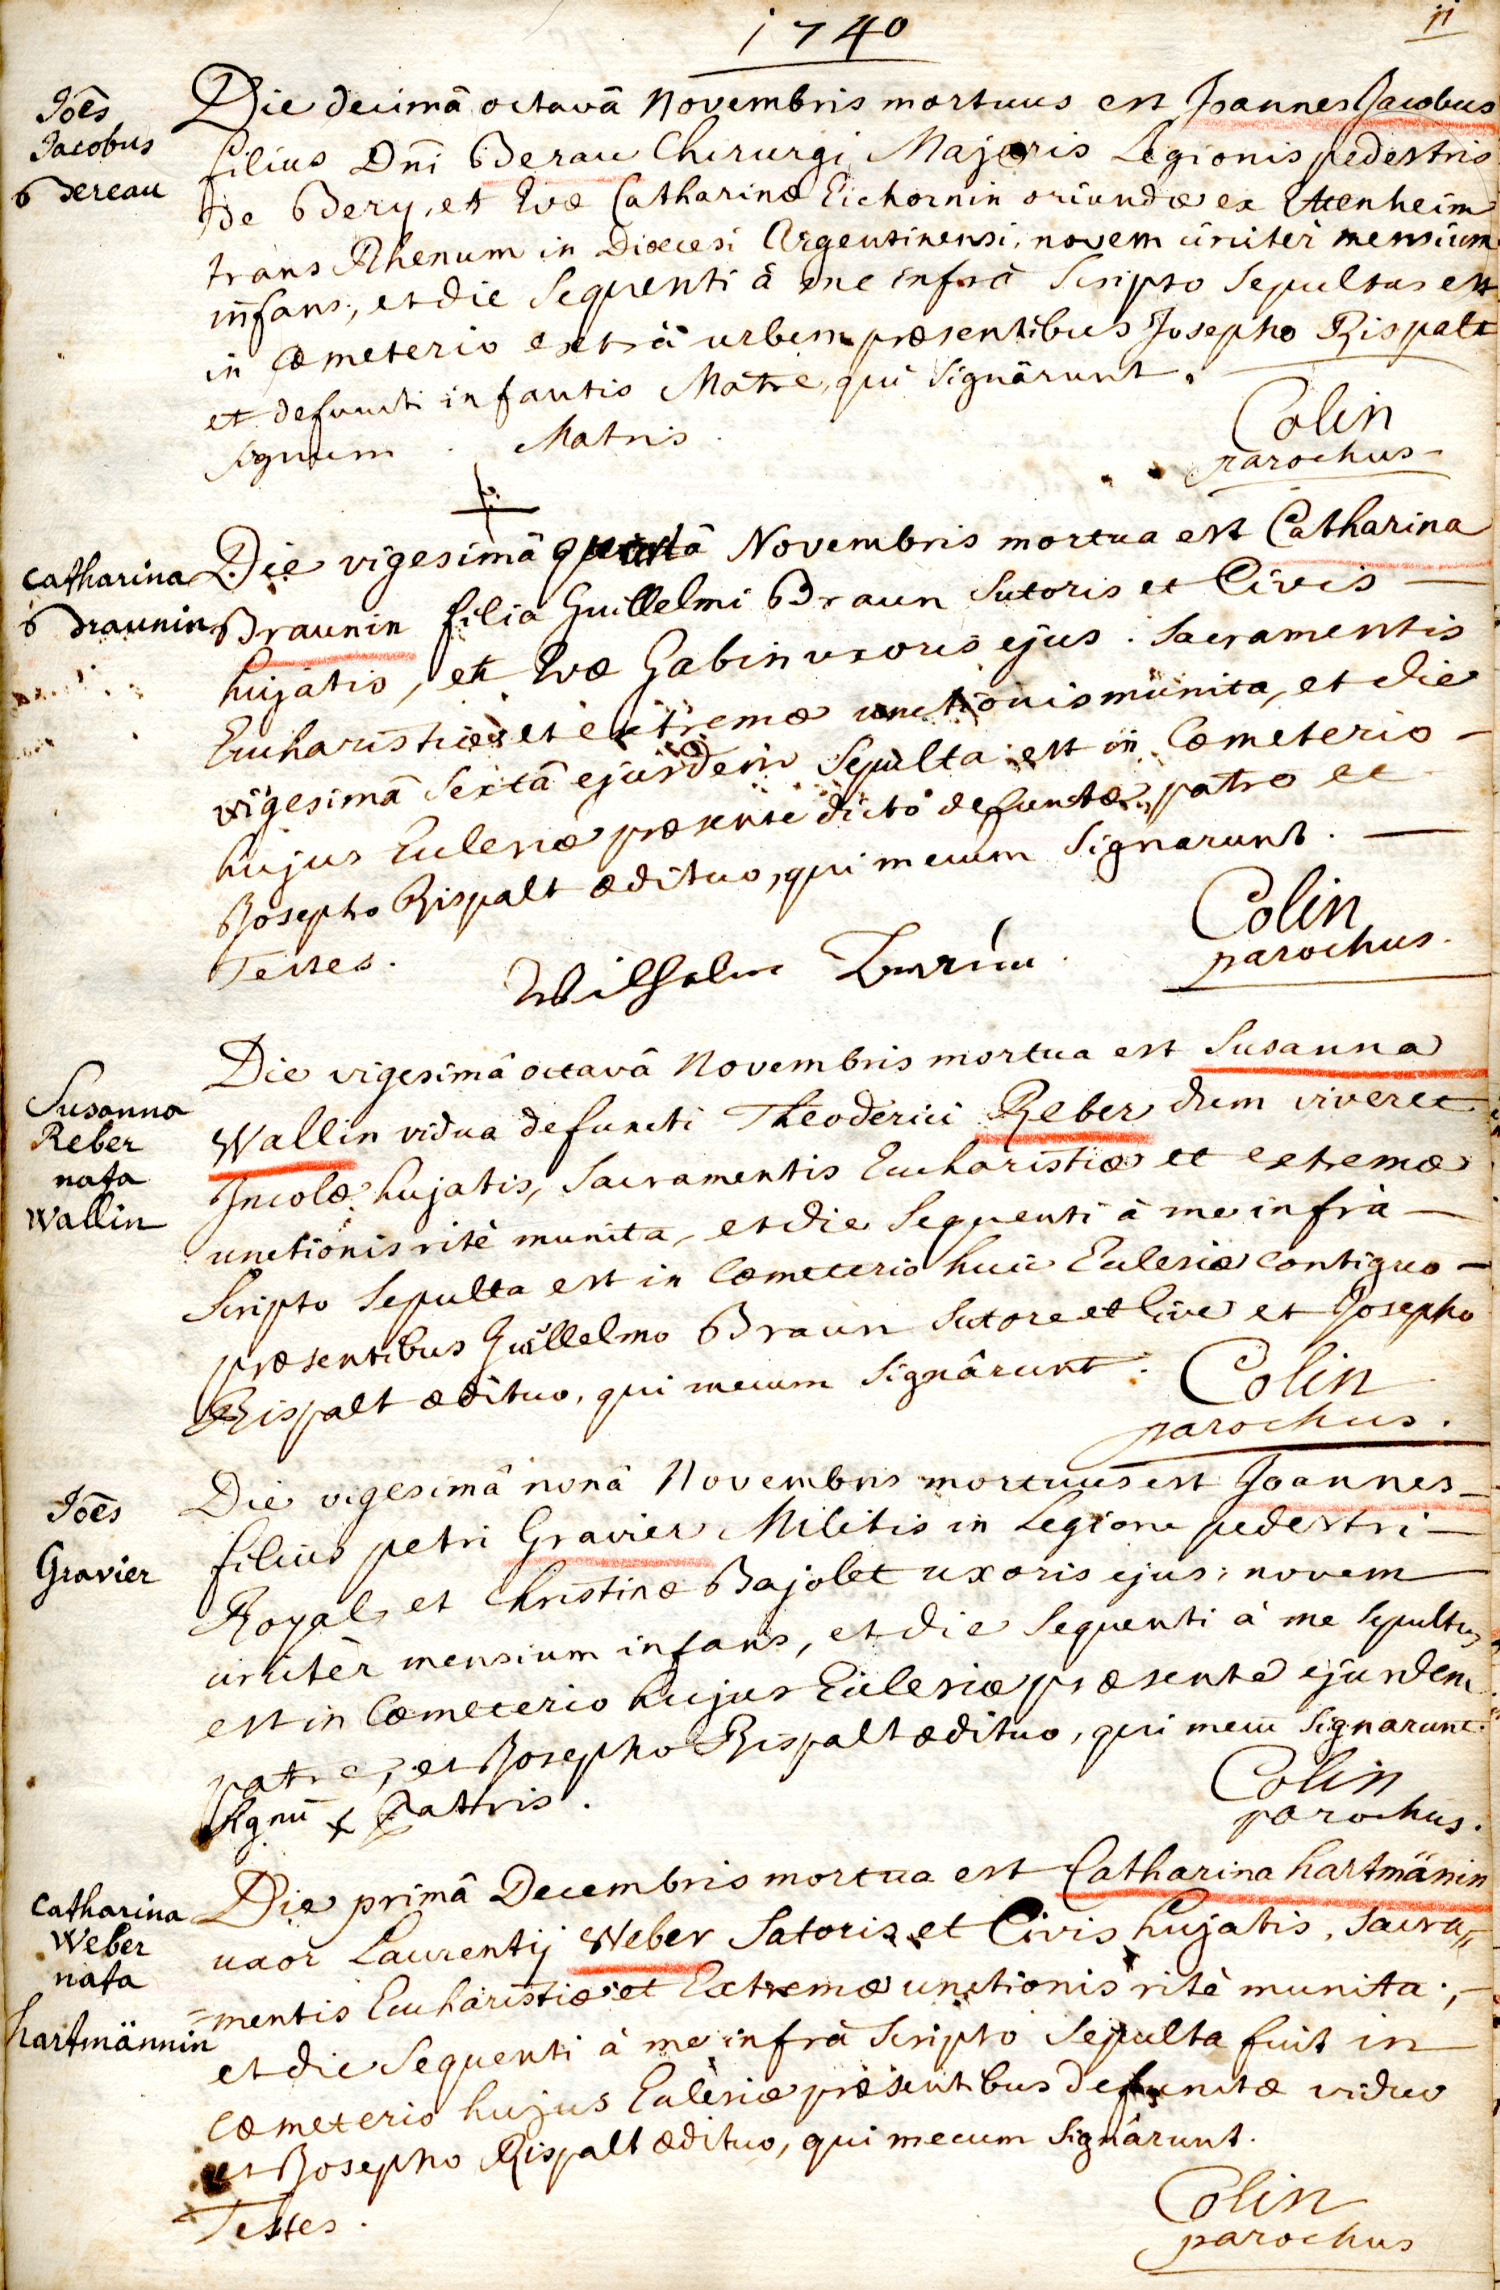 1740
11
Joēs
Jacobus
Bereau
Die decimâ octavâ Novembris mortuus est Joannes Jacobus
filius Dn̄i Berau Chirurgi Majoris Legionis pedestris
de Bery, et Evæ Catharinæ Eichornin oriundæ ex Ettenheim
trans Rhenum in Diœcesi Argentinensi, novem circiter mensium
infans, et die sequenti à me infrà scripto sepultus est
in Cœmeterio extrà urbem præsentibus Josepho Rispalt
et defuncti infantis Matre, qui signârunt.
signum Matris
Colin
parochus
Catharina
Braunin
Die vigesimâ quintâ Novembris mortua est Catharina
Braunin filia Guillelmi Braun Sutoris et Civis
hujatis, et Evæ Gabin uxoris ejus. Sacramentis
Eucharistiæ et extremæ unctionis munita, et die
vigesimâ sextâ ejusdem sepulta est in Cœmeterio
hujus Ecclesiæ præsente dicto defunctæ patre et
Josepho Rispalt ædituo, qui mecum signarunt.
Testes.
Wilhelm
Colin
parochus.
Susanna
Reber
nata
Wallin
Die vigesimâ octavâ Novembris mortua est Susanna
Wallin vidua defuncti Theoderici Reber dum viveret
Incolæ hujatis, Sacramentis Eucharistiæ et extremæ
unctionis ritè munita, et die sequenti à me infrà
scripto sepulta est in Cœmeterio huic Ecclesiæ contiguo
præsentibus Guillelmo Braun Sutore et Cive et Josepho
Rispalt ædituo, qui mecum signârunt.
Colin
parochus.
Joēs
Gravier
Die vigesimâ nonâ Novembris mortuus est Joannes
filius petri Gravier Militis in Legione pedestri
Royal et Christinæ Bajolet uxoris ejus; novem
circitèr mensium infans, et die sequenti à me sepultus
est in Cœmeterio hujus Ecclesiæ præsente ejusdem
patre, et Josepho Rispalt ædituo, qui mecū signarunt.
signū x Pattris.
Colin
parochus.
Catharina
Weber
nata
hartmännin
Die primâ Decembris mortua est Catharina hartmänin
uxor Laurentij Weber Satoris et Civis hujatis, sacra„
=mentis Eucharistiæ et Extremæ unctionis ritè munita;
et die sequenti à me infrà scripto sepulta fuit in
Cœmeterio hujus Ecclesiæ præsentibus defunctæ viduo
et Josepho Rispalt ædituo, qui mecum signârunt.
Testes.
Colin
parochus